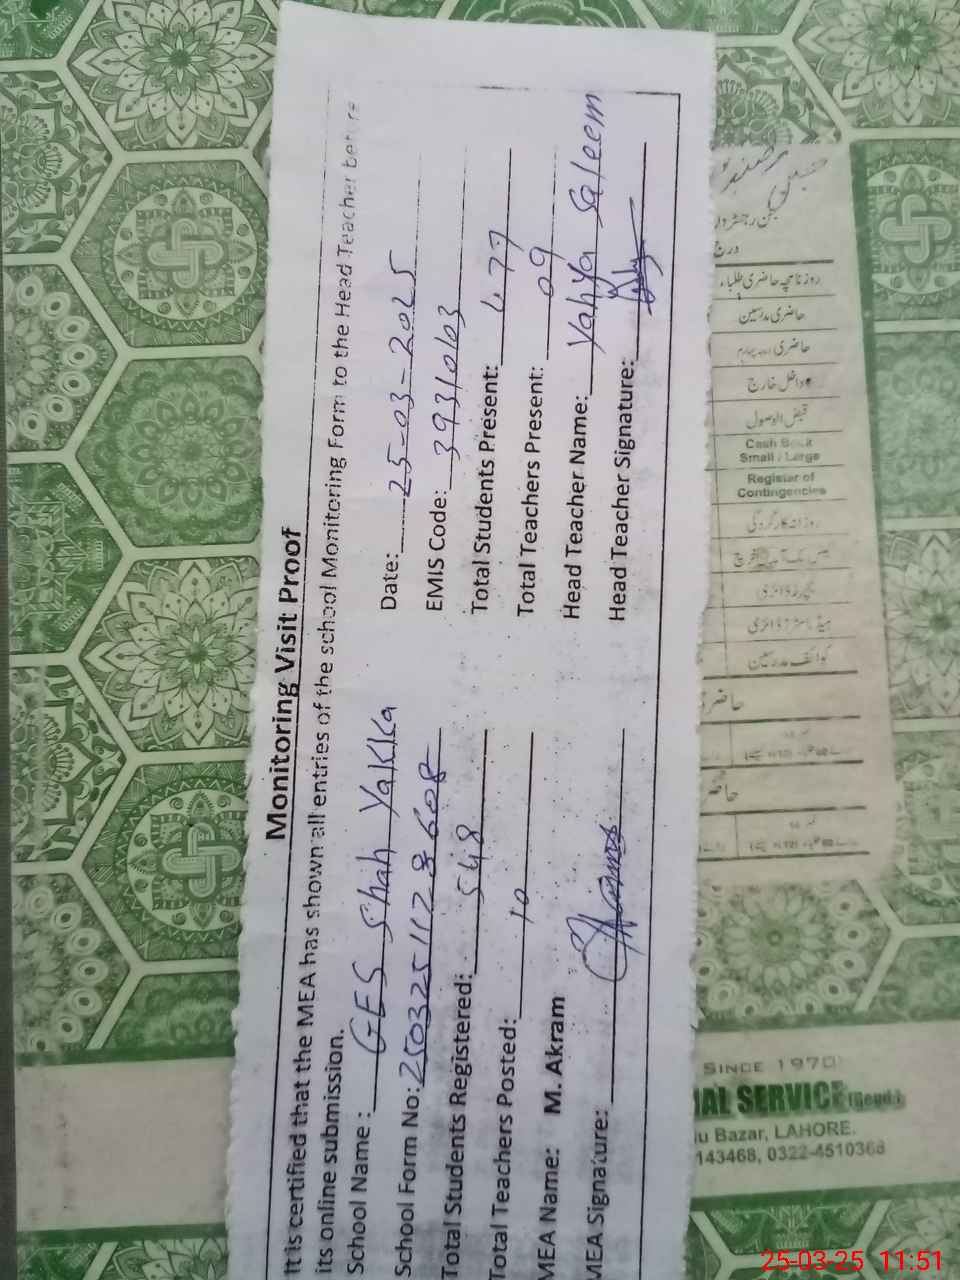 Monitoring Visit Proof
It is certified that the MEA has shown all entries of the school Monitoring Form to the Head Teacher before
its online submission.
School Name : GES Shah Yakka
Date: 25-03-2025
School Form No: 2503251128608
EMIS Code: 39310103
Total Students Registered: 548
Total Students Present: 477
Total Teachers Posted: 10
Total Teachers Present: 09
MEA Name: M. Akram
Head Teacher Name: Yahya Saleem
MEA Signature:
Head Teacher Signature:
روزنامچہ حاضری طلباء
حاضری مدرسین
داخل خارج
قبض الوصول
Cash Book
Small / Large
Register of
Contingencies
روزانہ کارگردگی
کوائف مدرسین
SINCE 1970
AL SERVICE (Regd.)
u Bazar, LAHORE.
143468, 0322-4510368
25-03-25 11:51